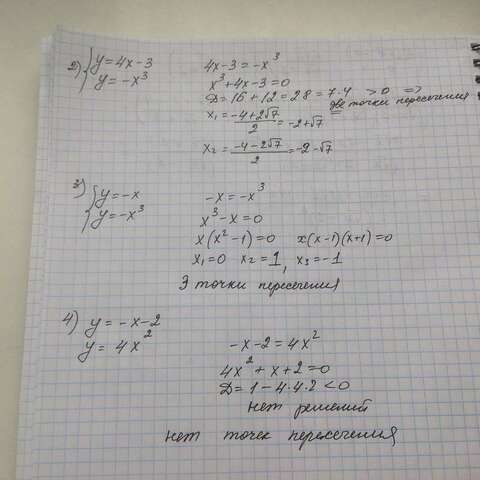 2) { y = 4x - 3 4x - 3 = -x³
y = -x³ x³ + 4x - 3 = 0
D = 16 + 12 = 28 = 7·4 > 0 =>
две точки пересечения
x₁ = (-4 + 2√7)/2 = -2 + √7
x₂ = (-4 - 2√7)/2 = -2 - √7
3) { y = -x -x = -x³
y = -x³ x³ - x = 0
x(x² - 1) = 0 x(x - 1)(x + 1) = 0
x₁ = 0 x₂ = 1, x₃ = -1
3 точки пересечения
4) y = -x - 2
y = 4x² -x - 2 = 4x²
4x² + x + 2 = 0
D = 1 - 4·4·2 < 0
нет решений
нет точек пересечения